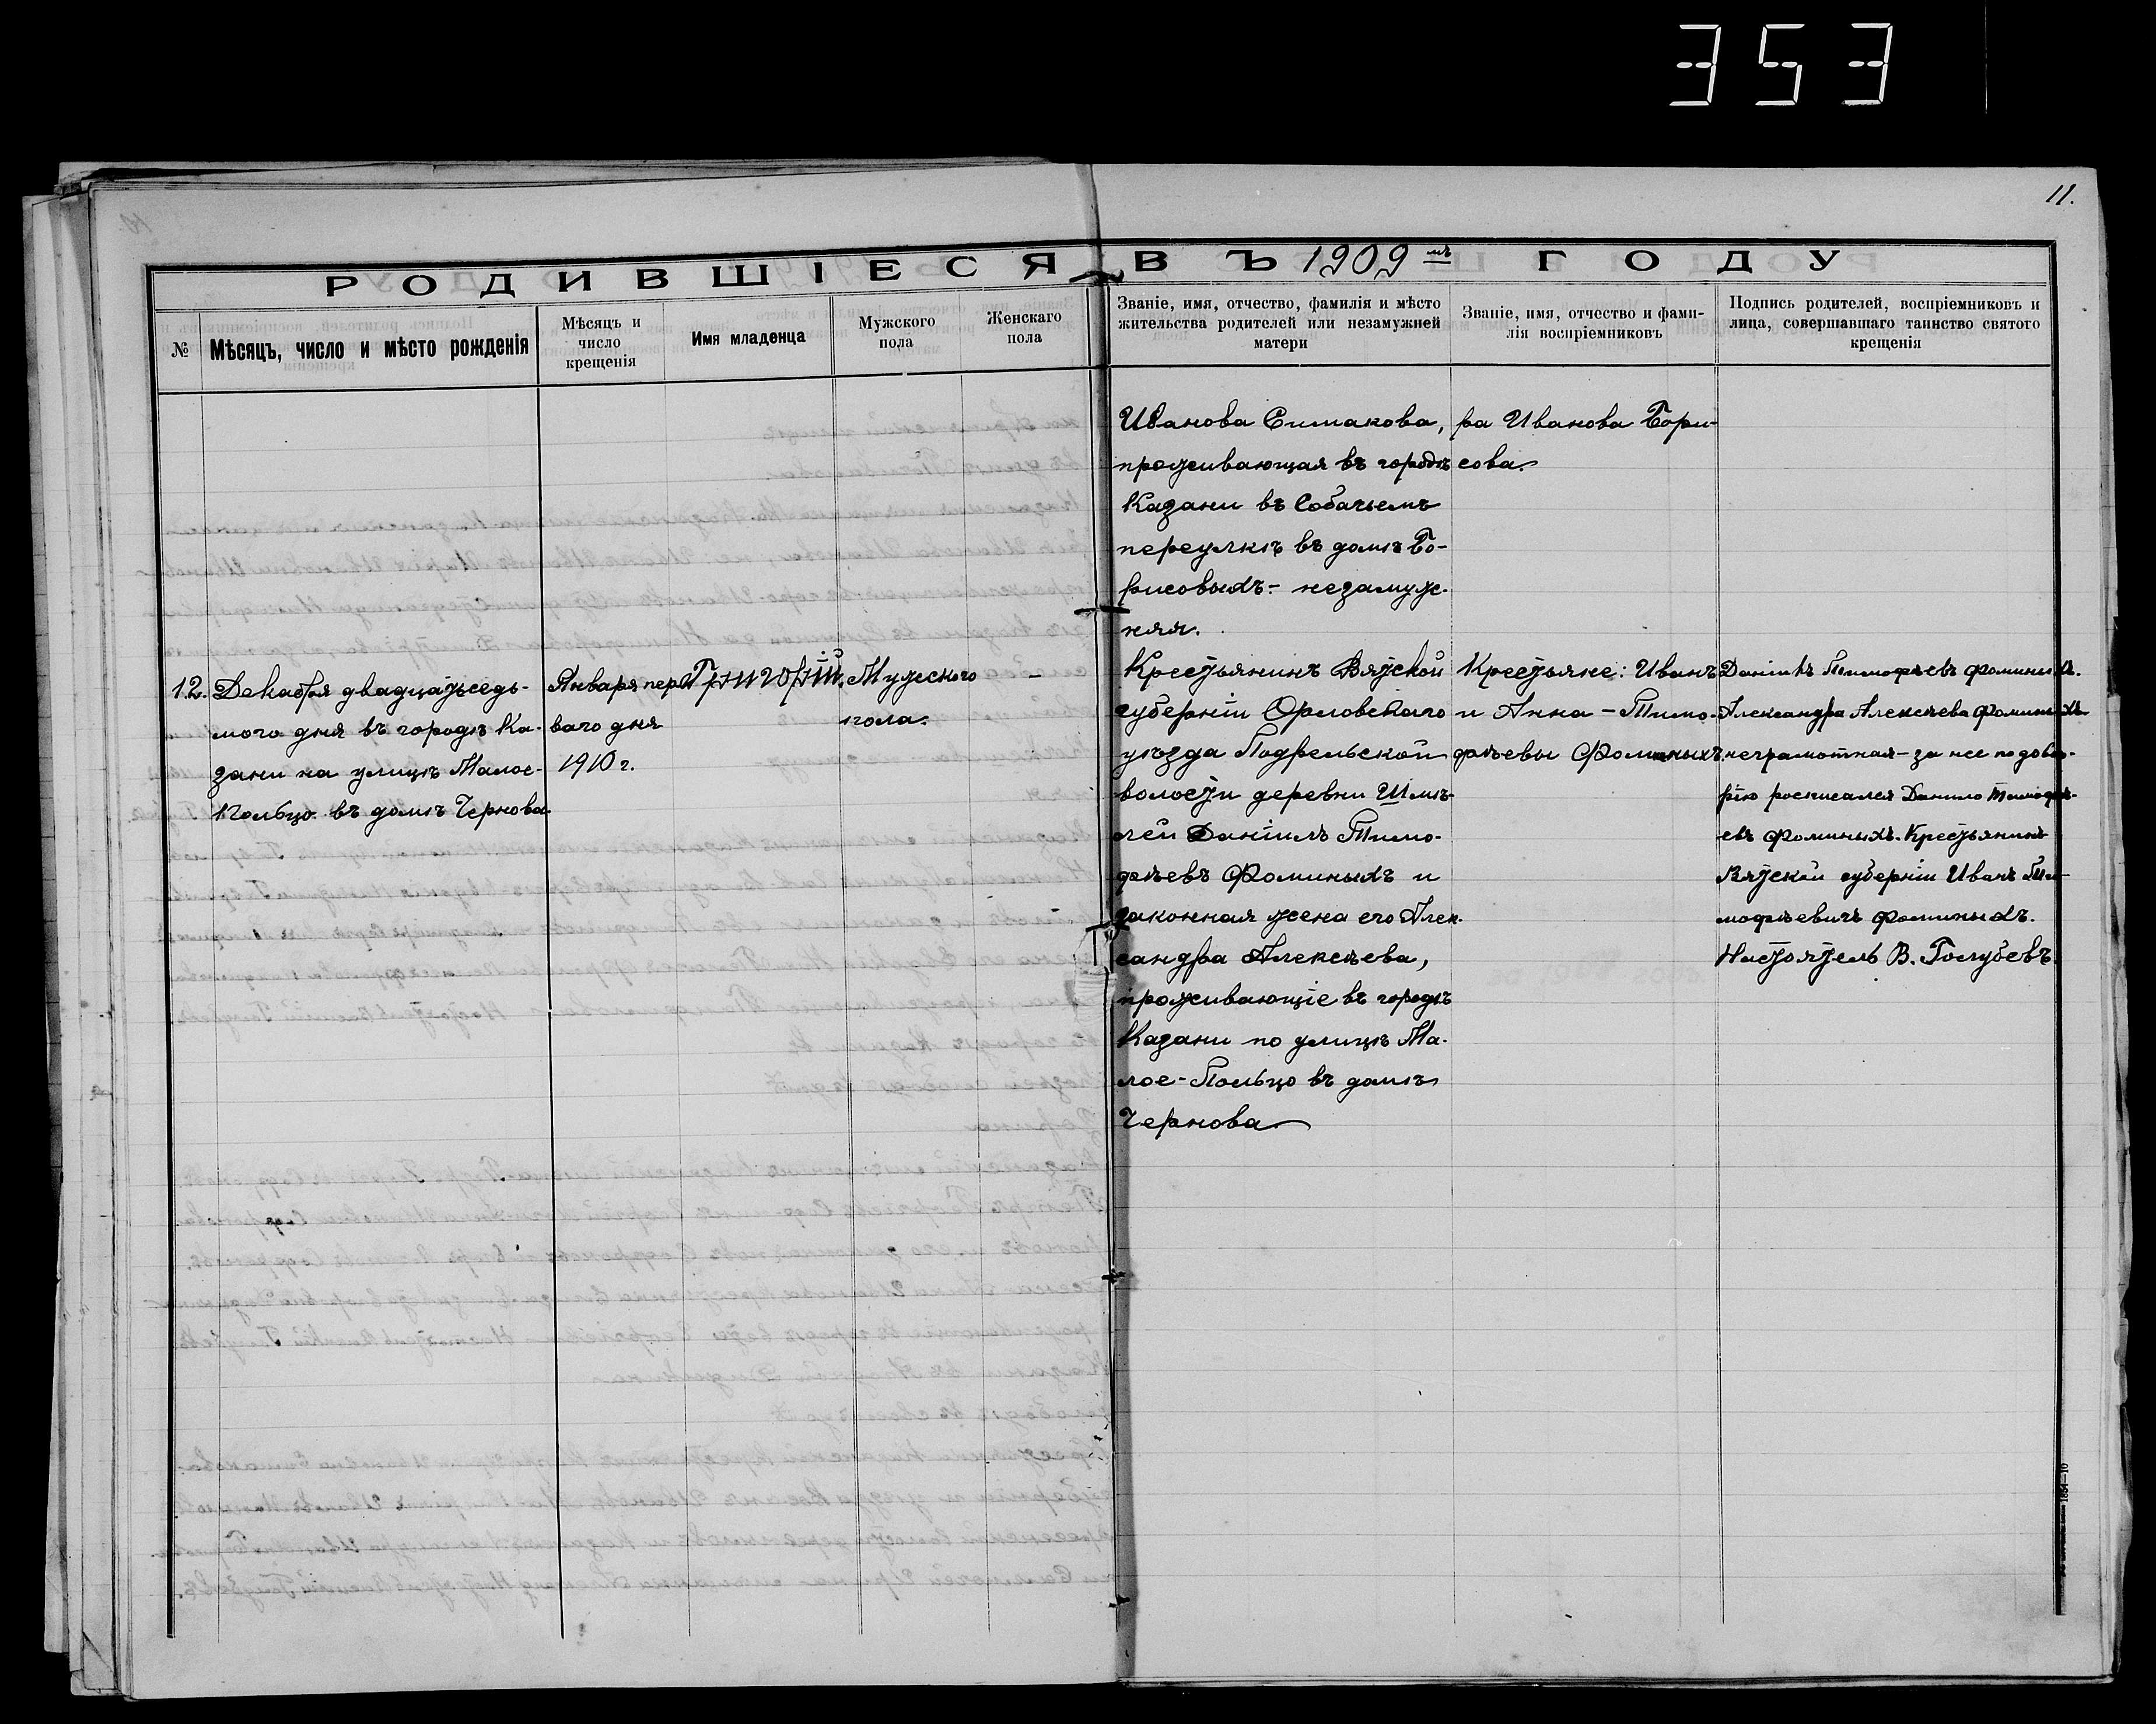 353
11.
РОДИВШІЕСЯ ВЪ 1909 мъ ГОДУ
№
Мѣсяцъ, число и мѣсто рожденія
Мѣсяцъ и
число
крещенія
Имя младенца
Мужского
пола
Женскаго
пола
Званіе, имя, отчество, фамилія и мѣсто
жительства родителей или незамужней
матери
Званіе, имя, отчество и фами-
лія воспріемниковъ
Подпись родителей, воспріемниковъ и
лица, совершавшаго таинство святого
крещенія
Иванова Симакова,
проживающая въ городѣ
Казани въ Собачьемъ
переулкѣ въ домѣ Бо-
рисовыхъ - незамуж-
няя.
ра Иванова Бори-
сова
12.
Декабря двадцатьседь-
мого дня въ городѣ Ка-
зани на улицѣ Малое-
Польцо въ домѣ Чернова
Января пер-
ваго дня
1910 г.
Григорій.
Мужеского
пола.
-
Крестьянинъ Вятской
губерніи Орловскаго
уѣзда Подрельской
волости деревни Шмы-
лей Даніилъ Тимо-
фѣевъ Фоминыхъ и
законная жена его Алек-
сандра Алексѣева,
проживающіе въ городѣ
Казани по улицѣ Ма-
лое-Польцо въ домѣ
Чернова
Крестьяне: Иванъ
и Анна - Тимо-
фѣевы Фоминыхъ
Даніилъ Тимофѣевъ Фоминыхъ.
Александра Алексѣева Фоминыхъ
неграмотная - за нее по довѣ-
рію росписался Данило Тимофѣ-
евъ Фоминыхъ. Крестьянинъ
Вятской губерніи Иванъ Ти-
мофѣевичъ Фоминыхъ.
Настоятель В. Голубевъ.